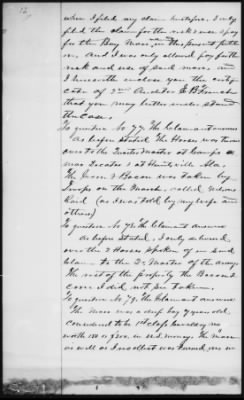 12
when I filed my claim heretofore. I only
filed the claim for the rest and was pay
for the Bay Mare, in the present petiti
on, and I was only allowed pay for the
and use of said mare and
I herewith enclose you the certifi
cate of 2nd Auditor E B French
that you may better understand
the case.
To question No 77. The Claimant answers
As before stated. The Horse was turned
over to the Quarter Master at Camps
was located at Huntsville Ala.
The Corn & Bacon was taken by
Troops on the March, called Wilsons
Raid (as I was told by my wife and
others)
To question No 78. The Claimant answers
As before stated, I only delivered
over the 2 Horses spoken of in said
Claim to the Qr. Master of the army.
The rest of the property the Bacon &
Corn I did not see taken.
To question No 79. The Claimant answers
The Mare was a deep bay 7 years old,
considered to be 1st class, Cavalry no
worth 150 or $200. in U.S. money. The mare
as well as I recollect was turned over in